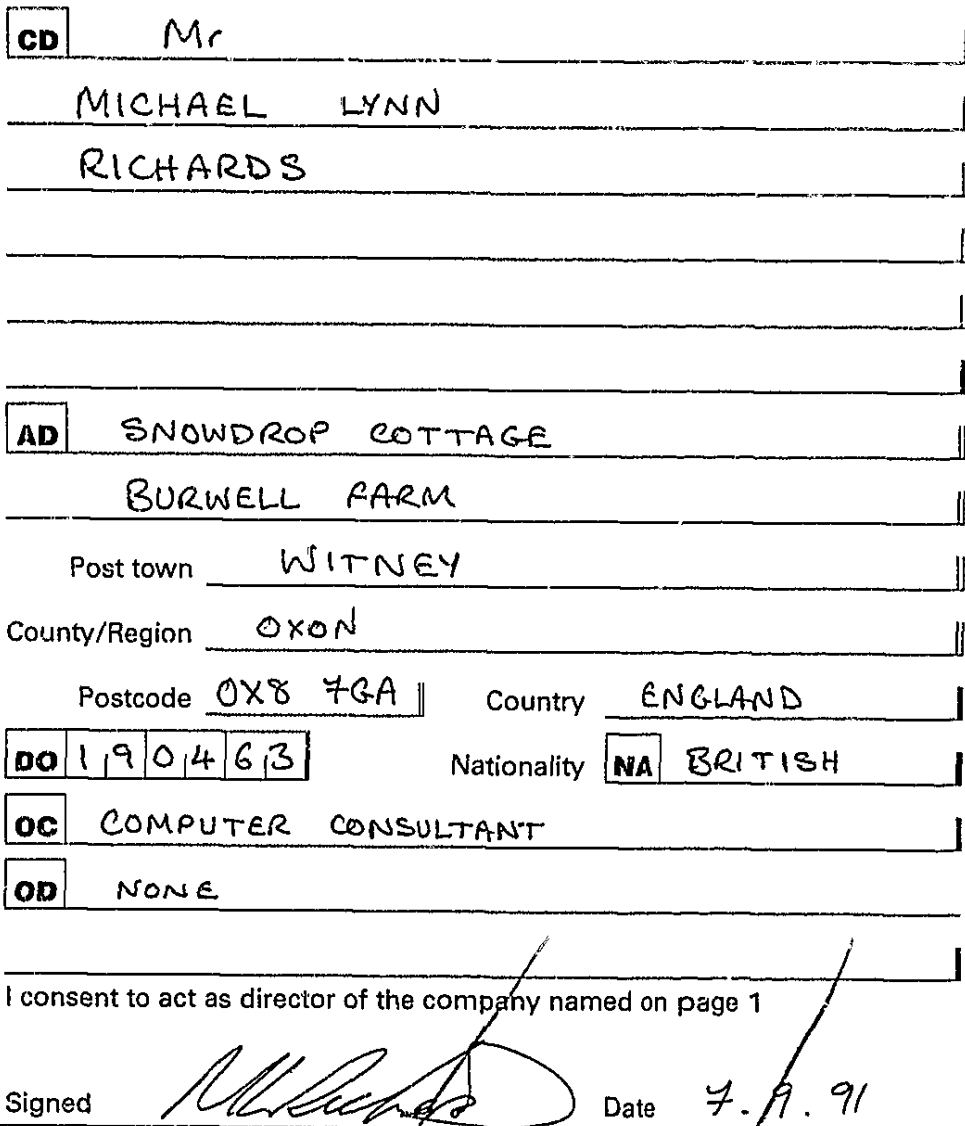 CD Mr
MICHAEL LYNN
RICHARDS
AD SNOWDROP COTTAGE
BURWELL FARM
Post town WITNEY
County/Region OXON
Postcode OX8 7GA Country ENGLAND
DO 190463 Nationality NA BRITISH
OC COMPUTER CONSULTANT
OD NONE
I consent to act as director of the company named on page 1
Signed Date 7. 9. 91